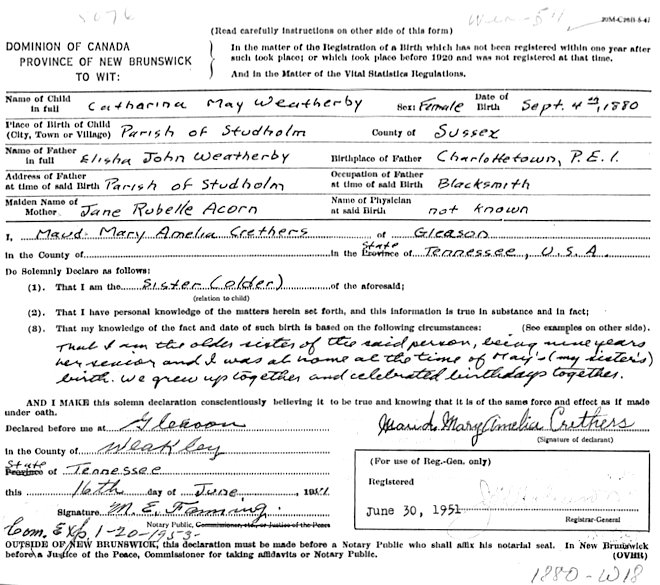 5076
20M-C28B-5-47
(Read carefully instructions on other side of this form)
DOMINION OF CANADA
PROVINCE OF NEW BRUNSWICK
TO WIT:
In the matter of the Registration of a Birth which has not been registered within one year after
such took place; or which took place before 1920 and was not registered at that time.
And in the Matter of the Vital Statistics Regulations.
Name of Child in full Catharina May Weatherby Sex: Female Date of Birth Sept. 4th, 1880
Place of Birth of Child (City, Town or Village) Parish of Studholm County of Sussex
Name of Father in full Elisha John Weatherby Birthplace of Father Charlottetown, P.E.I.
Address of Father at time of said Birth Parish of Studholm Occupation of Father at time of said Birth Blacksmith
Maiden Name of Mother Jane Rubelle Acorn Name of Physician at said Birth not known
I, Maud Mary Amelia Crethers of Gleason
In the County of in the State Province of Tennessee, U.S.A.
Do Solemnly Declare as follows:
(1). That I am the Sister (older) of the aforesaid;
(relation to child)
(2). That I have personal knowledge of the matters herein set forth, and this information is true in substance and in fact;
(3). That my knowledge of the fact and date of such birth is based on the following circumstances: (See examples on other side).
That I am the older sister of the said person, being nine years
her senior and I was at home at the time of May's (my sister's)
birth. We grew up together and celebrated birthdays together.
AND I MAKE this solemn declaration conscientiously believing it to be true and knowing that it is of the same force and effect as if made
under oath.
Declared before me at Gleason
Maud Mary Amelia Crethers
(Signature of declarant)
In the County of Weakley
State Province of Tennessee
this 16th day of June, 1951
Signature M. E. Fanning
Notary Public, Commissioner, etc., or Justice of the Peace
Com. Exp. 1-20-1953-
(For use of Reg.-Gen. only)
Registered
June 30, 1951
Registrar-General
OUTSIDE OF NEW BRUNSWICK, this declaration must be made before a Notary Public who shall affix his notarial seal. In New Brunswick
before a Justice of the Peace, Commissioner for taking affidavits or Notary Public.
(OVER)
1880-W18